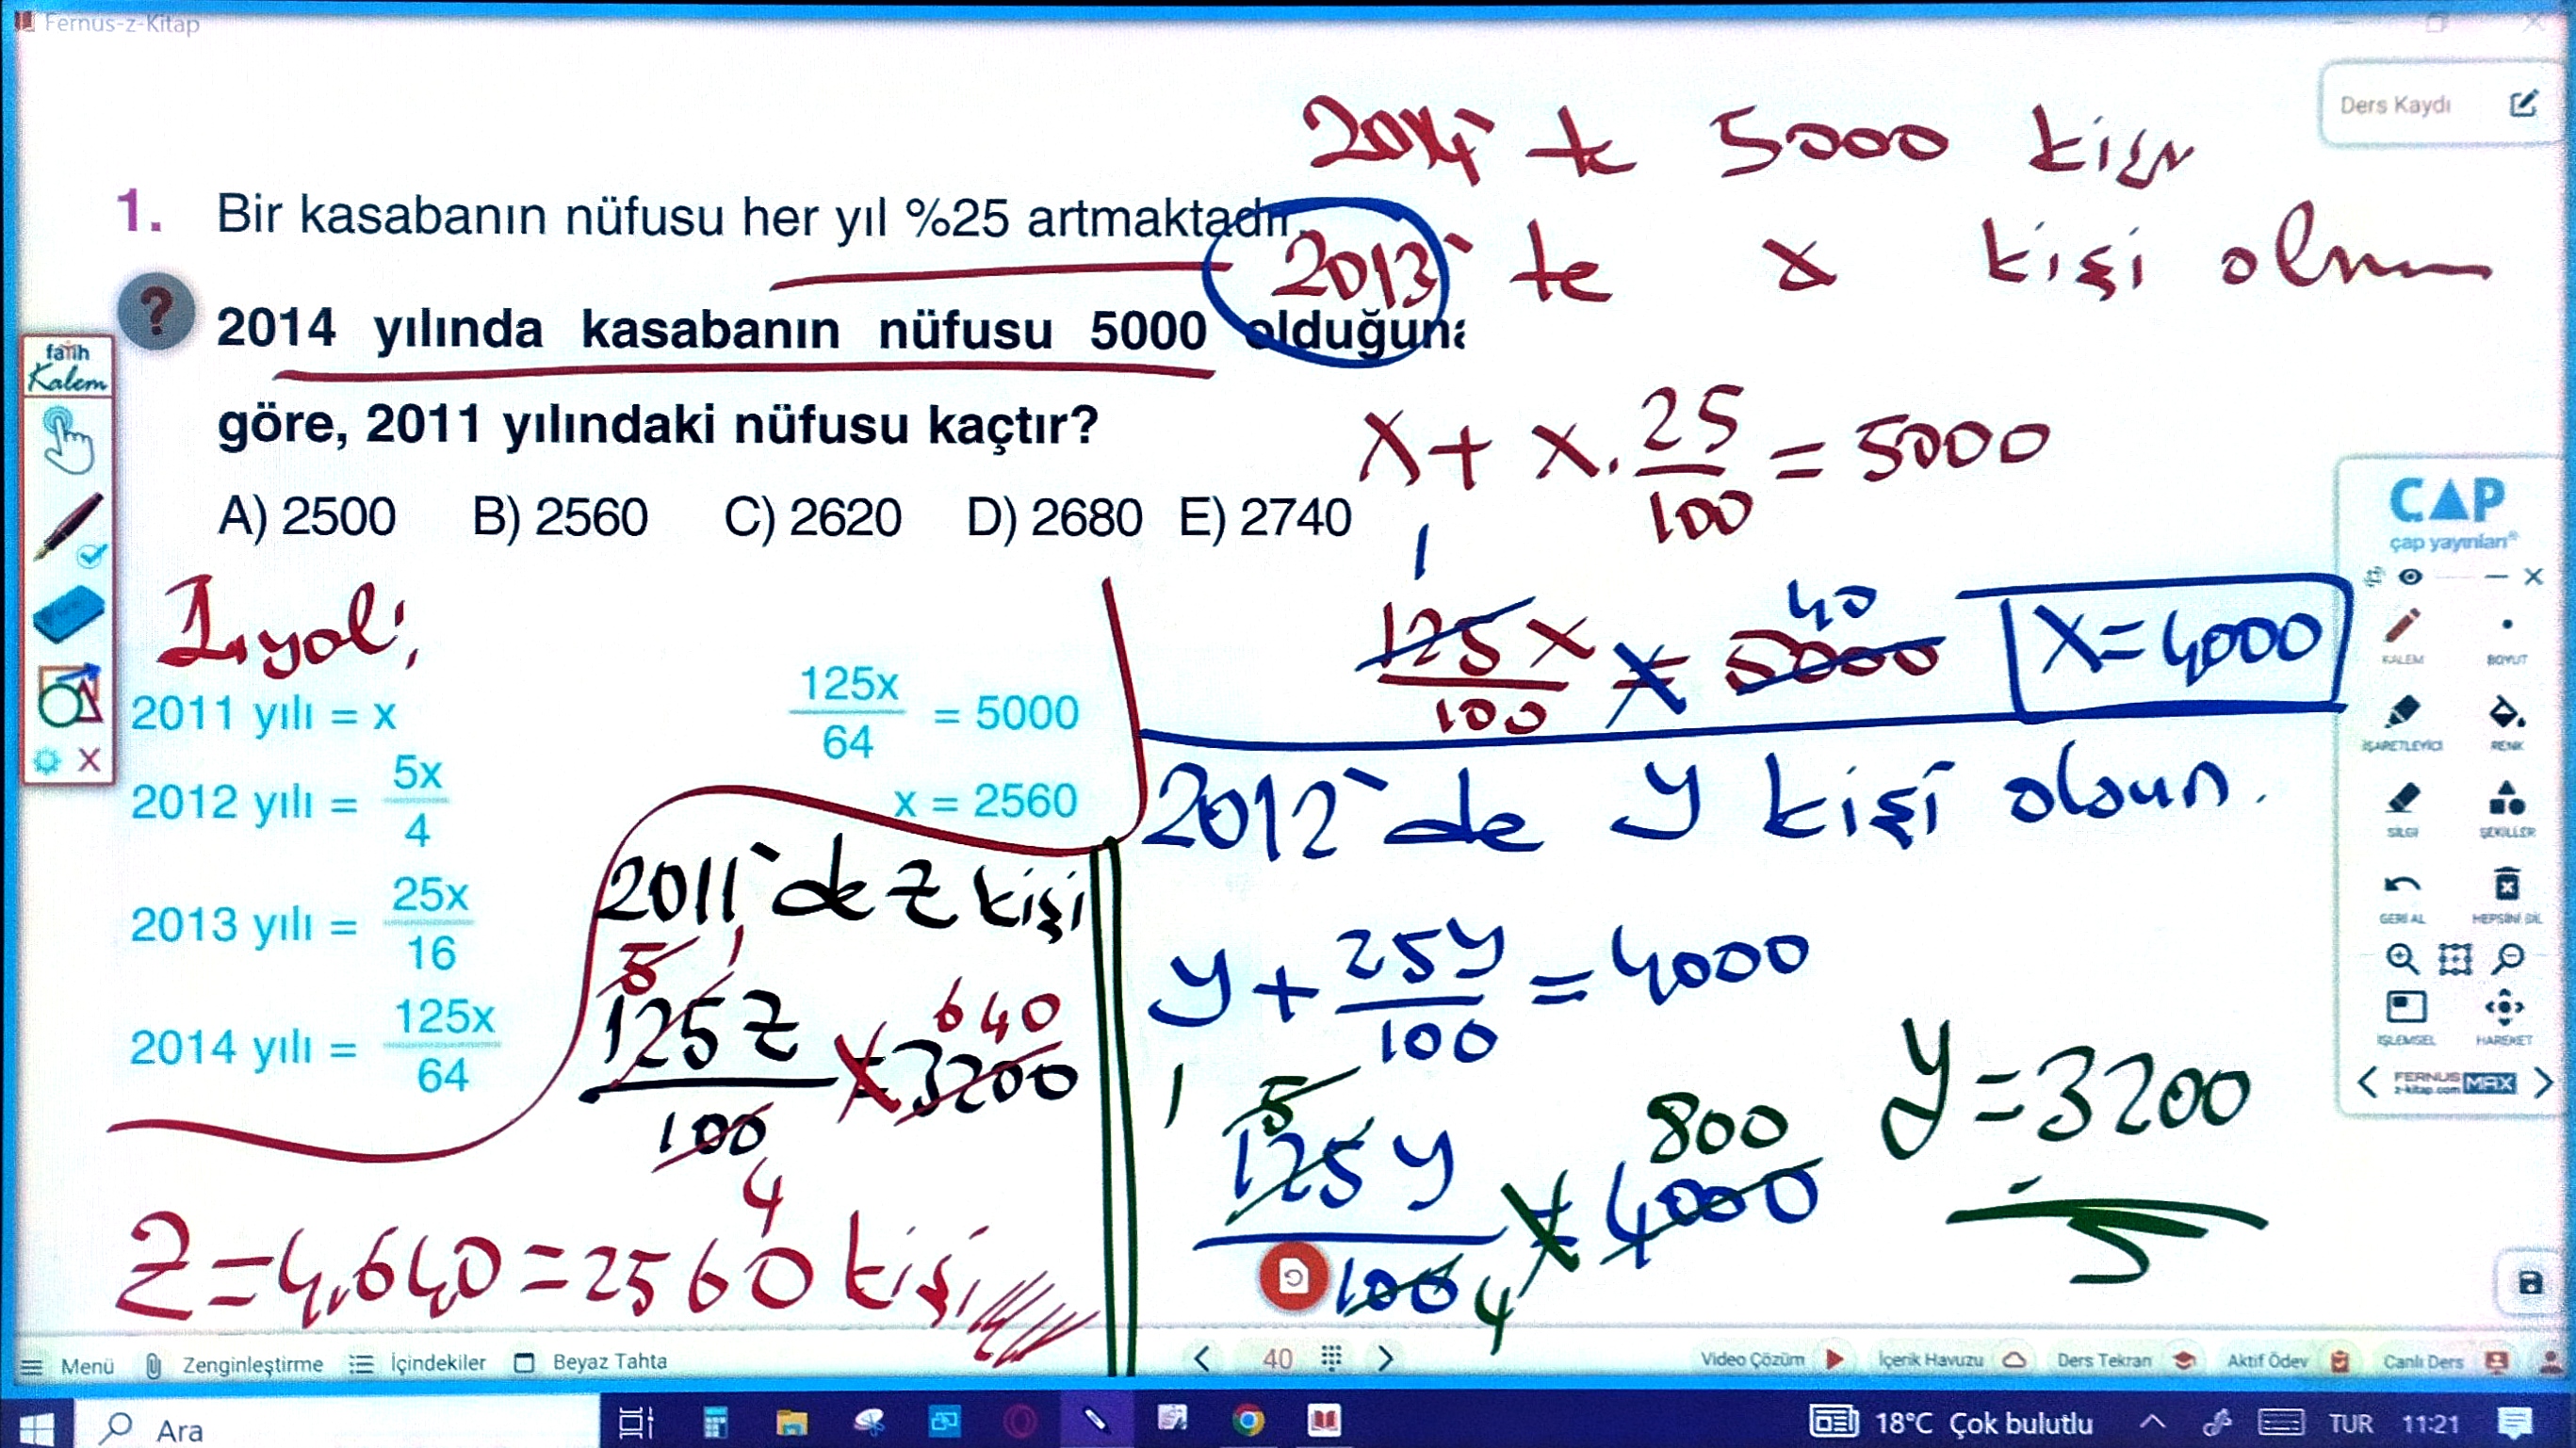 Fernus-z-Kitap
Ders Kaydı
2014' te 5000 kişi
1. Bir kasabanın nüfusu her yıl %25 artmaktadır.
2013' te x kişi olsun
2014 yılında kasabanın nüfusu 5000 olduğuna
göre, 2011 yılındaki nüfusu kaçtır?
A) 2500 B) 2560 C) 2620 D) 2680 E) 2740
x + x . 25/100 = 5000
125x/100 = 5000 40 1
x = 4000
1. yol;
2011 yılı = x
2012 yılı = 5x/4
2013 yılı = 25x/16
2014 yılı = 125x/64
125x/64 = 5000
x = 2560
2012' de y kişi olsun.
y + 25y/100 = 4000
1 5 125y/100 = 4000 800 4
y = 3200
5
2011' de z kişi
5 1 125z/100 = 3200 640 4
z = 4.640 = 2560 kişi
fatih
Kalem
ÇAP
çap yayınları
KALEM BOYUT
İŞARETLEYİCİ RENK
SİLGİ ŞEKİLLER
GERİ AL HEPSİNİ SİL
İŞLEMSEL HAREKET
FERNUS
z-kitap.com MAX
Menü Zenginleştirme İçindekiler Beyaz Tahta 40 Video Çözüm İçerik Havuzu Ders Tekrarı Aktif Ödev Canlı Ders
Ara 18°C Çok bulutlu TUR 11:21